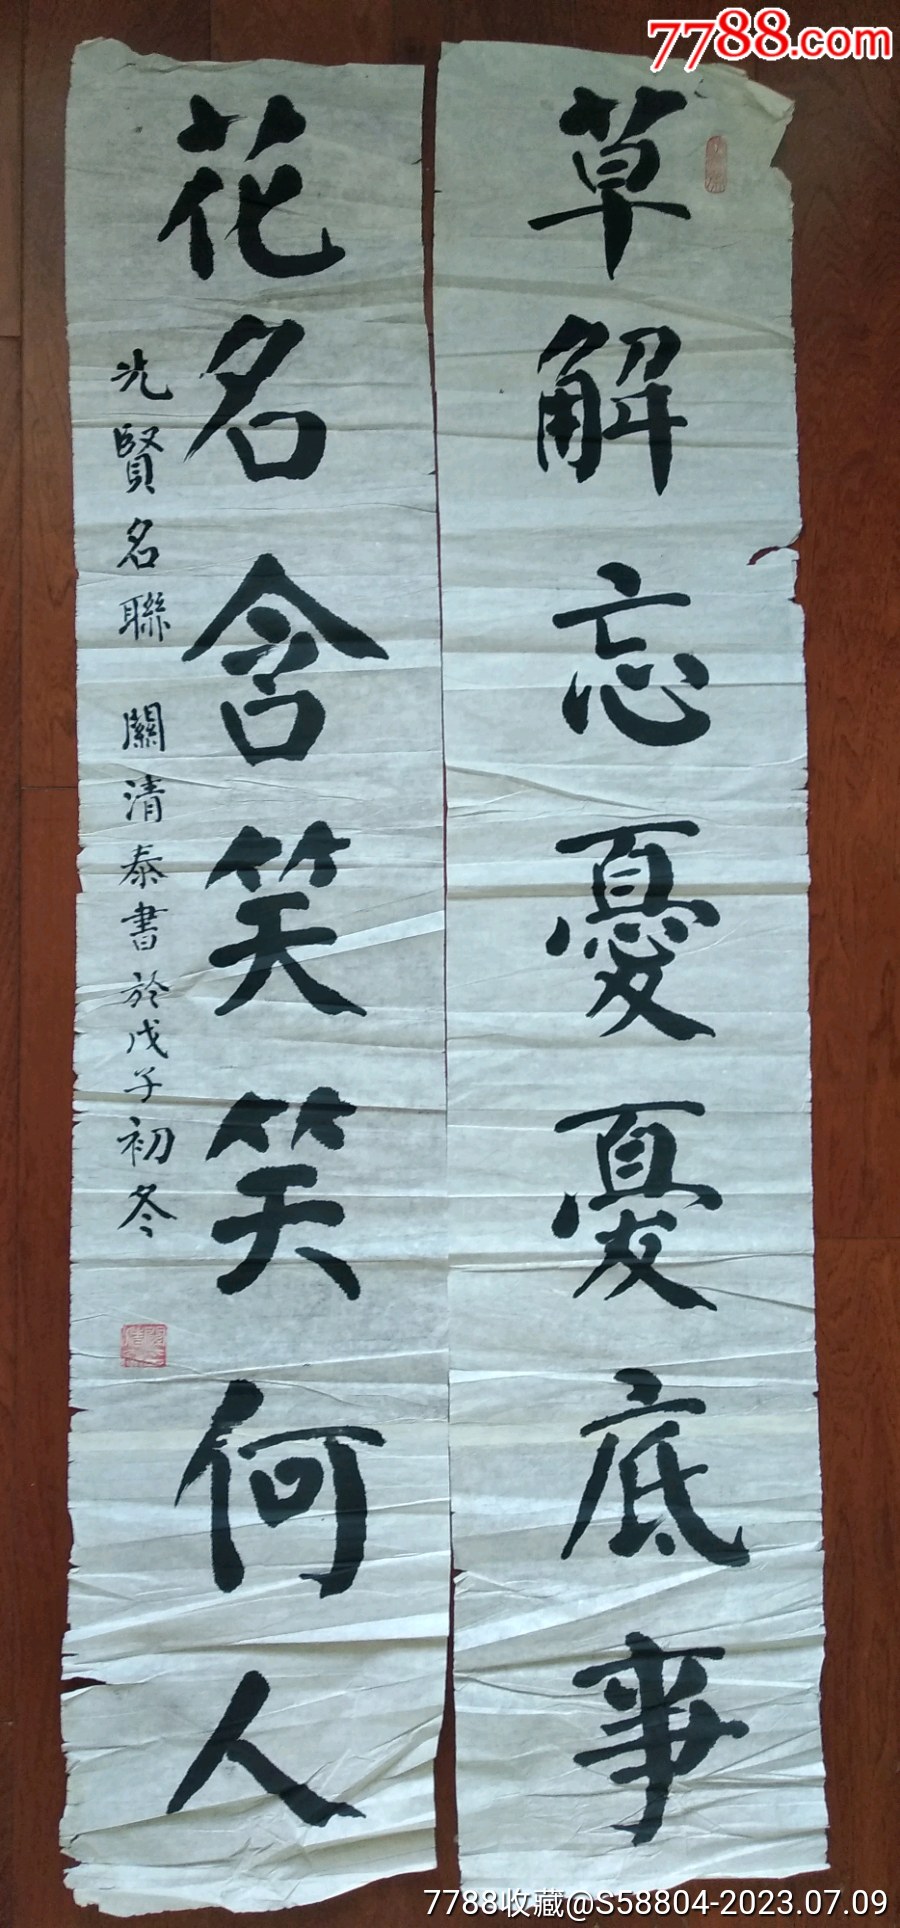 7788.com
草解忘憂憂底事
花名含笑笑何人
先賢名聯 關清泰書於戊子初冬
7788收藏@S58804-2023.07.09